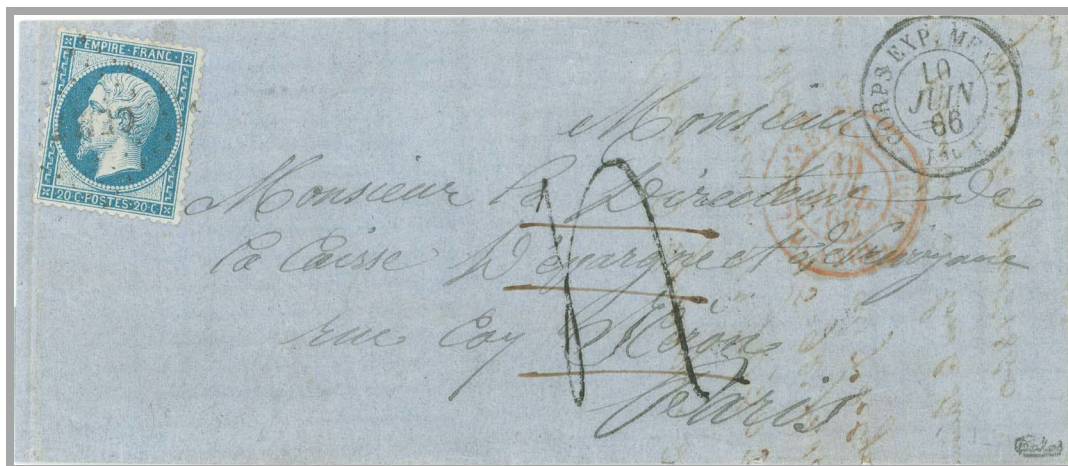 EMPIRE·FRANC·
20·C·POSTES·20·C
CORPS EXP. MEXIQUE
10
JUIN
66
Monsieur
Monsieur le Directeur de
la Caisse D'épargne et de Prévoyance
rue Coq Héron
Paris